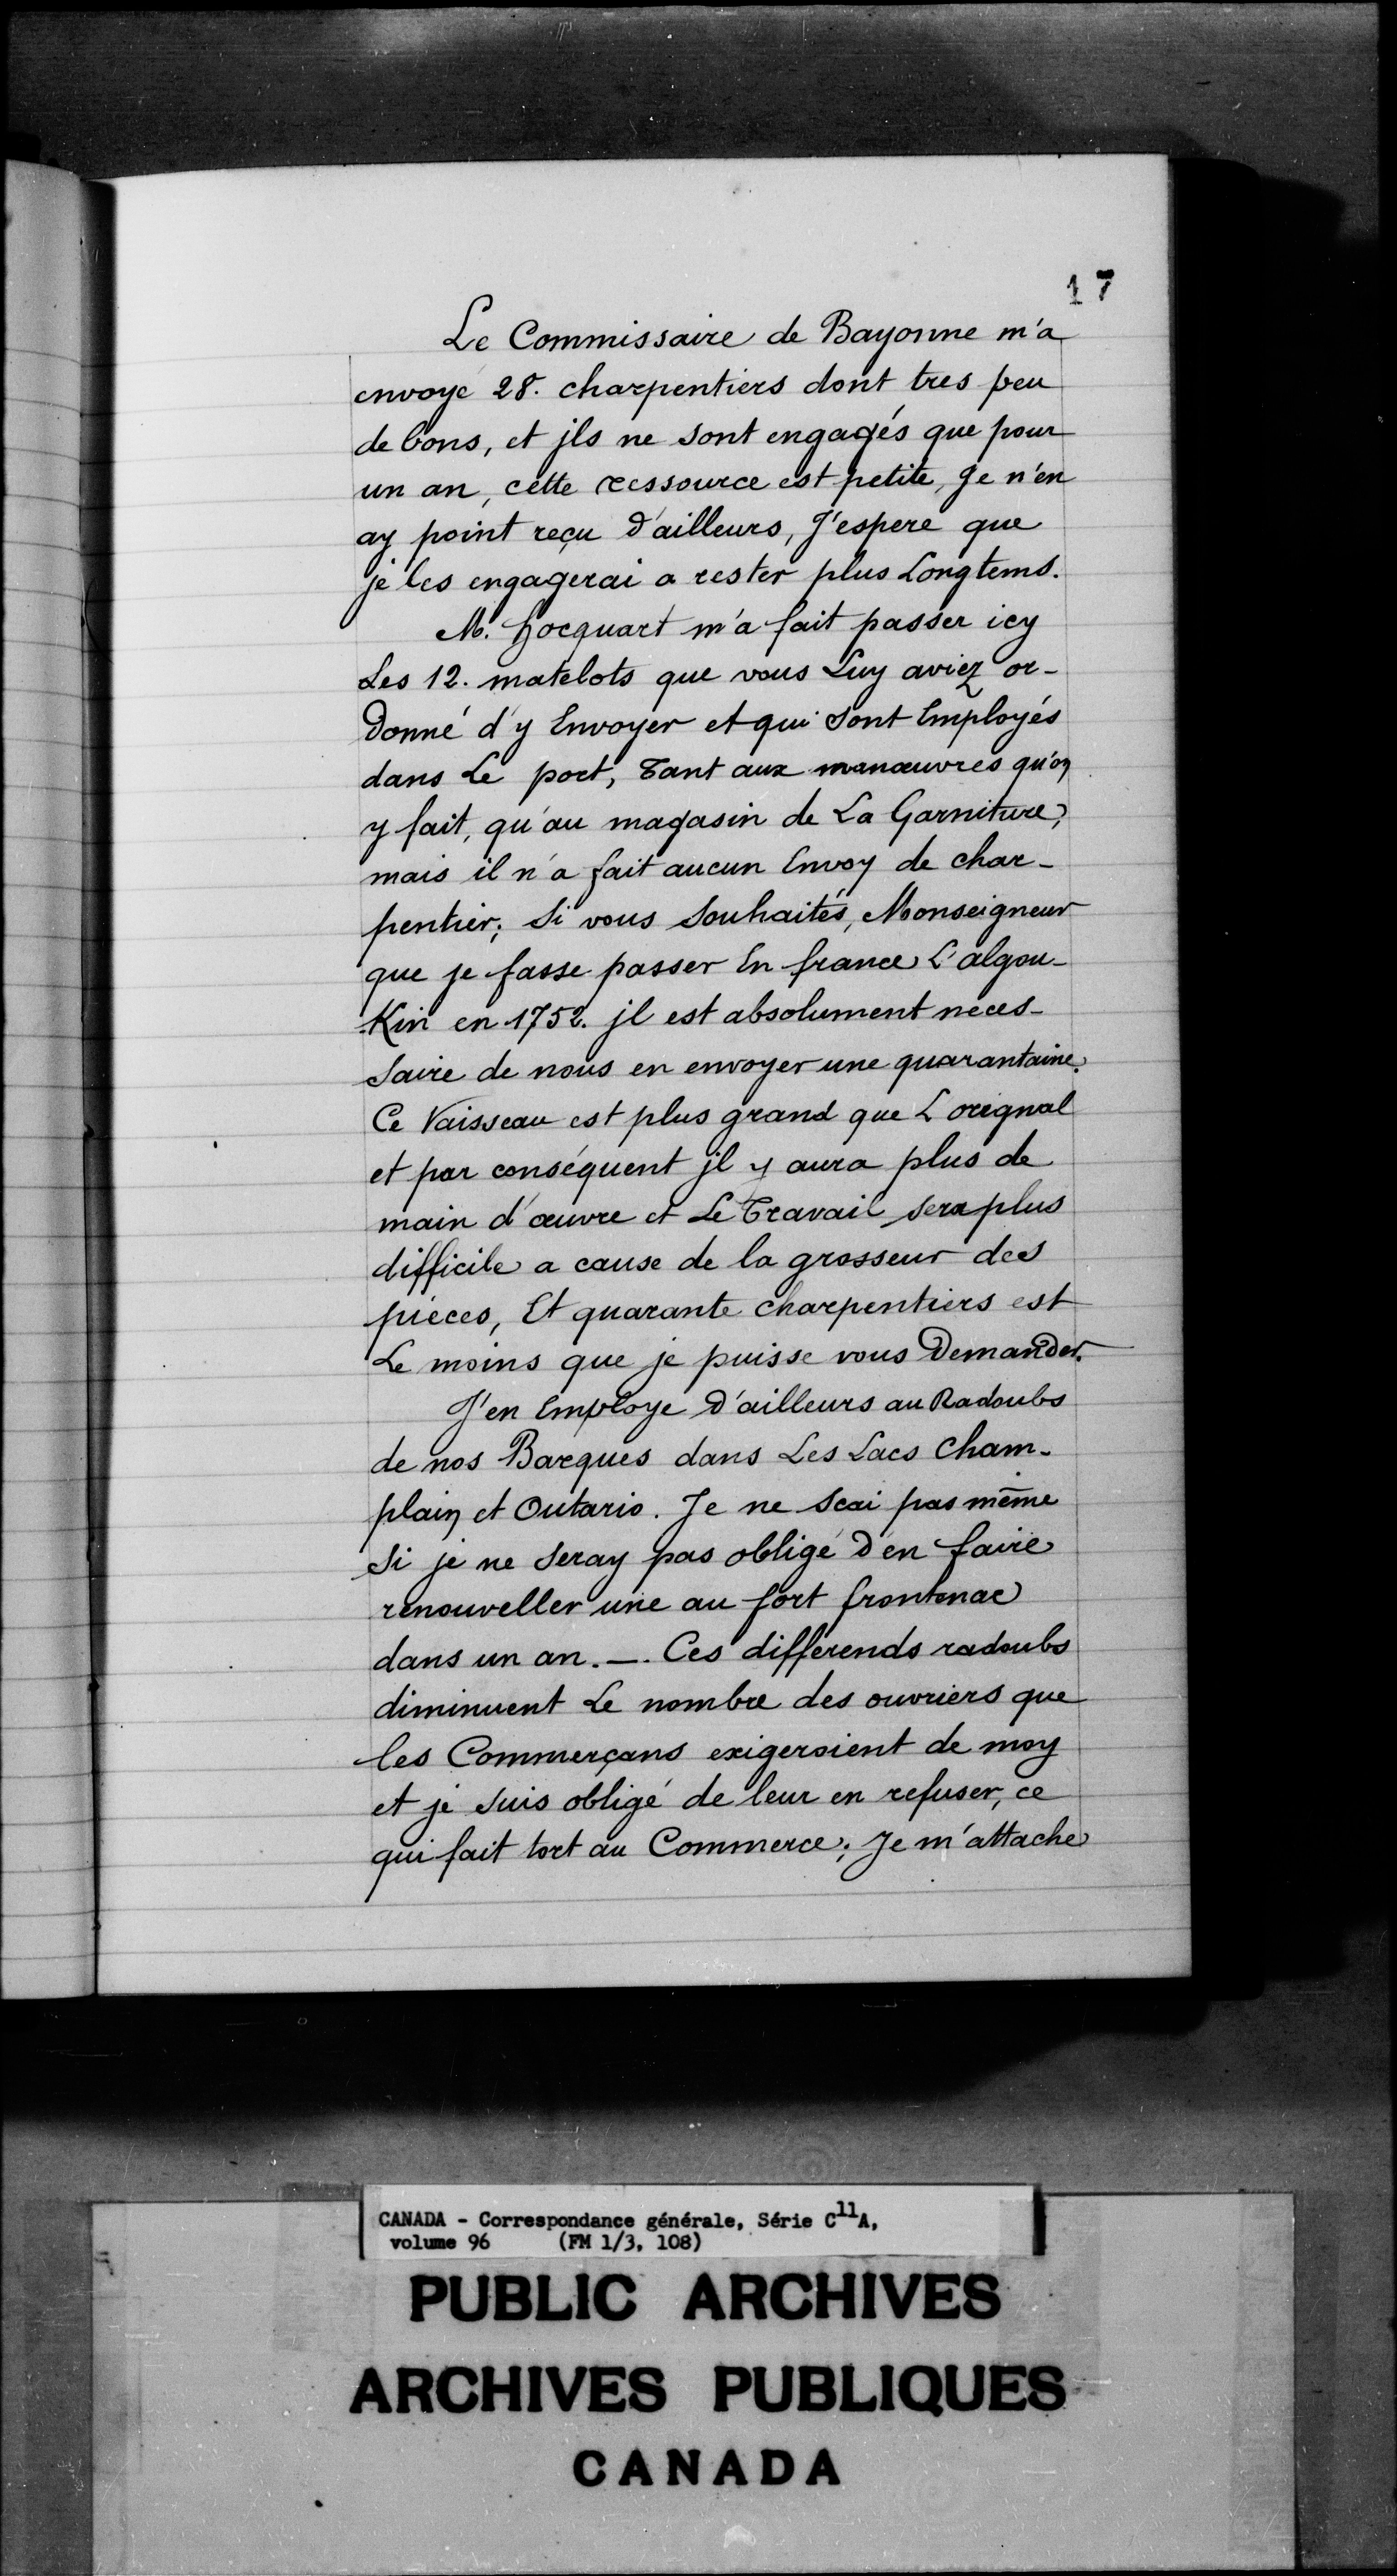 17
Le Commissaire de Bayonne m'a
envoyé 28. charpentiers dont tres peu
de bons, et jls ne sont engagés que pour
un an, cette ressource est petite, Je n'en
ay point reçu d'ailleurs, J'espere que
je les engagerai a rester plus Longtems.
M. hocquart m'a fait passer icy
Les 12. matelots que vous Luy aviez or-
donné d'y Envoyer et qui sont Employés
dans Le port, Tant aux manœuvres qu'on
y fait, qu'au magasin de La Garniture,
mais il n'a fait aucun Envoy de char-
pentier; Si vous Souhaités, Monseigneur
que je fasse passer En france L'algou-
Kin en 1752. jl est absolument neces-
saire de nous en envoyer une quarantaine.
Ce Vaisseau est plus grand que L orignal
et par conséquent jl y aura plus de
main d'œuvre et Le Travail sera plus
difficile a cause de la grosseur des
pièces, Et quarante charpentiers est
Le moins que je puisse vous Demander.
J'en Employe d'ailleurs au Radoubs
de nos Barques dans Les Lacs Cham-
plain et Outario. Je ne scai pas même
Si je ne seray pas obligé d'en faire
renouveller une au fort frontenac
dans un an. _. Ces différends radoubs
diminuent Le nombre des ouvriers que
les Commerçans exigeroient de moy
et je suis obligé de leur en refuser, ce
qui fait tort au Commerce; Je m'attache
CANADA - Correspondance générale, Série C11A,
volume 96 (FM 1/3, 108)
PUBLIC ARCHIVES
ARCHIVES PUBLIQUES
CANADA